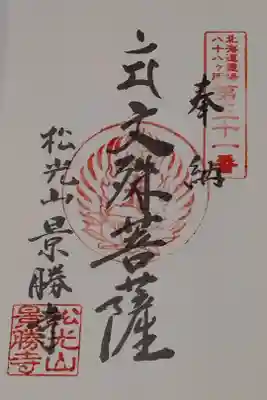 北海道霊場
八十八ヶ所
第三十一番
奉納
文殊菩薩
松光山景勝寺
松光山
景勝寺